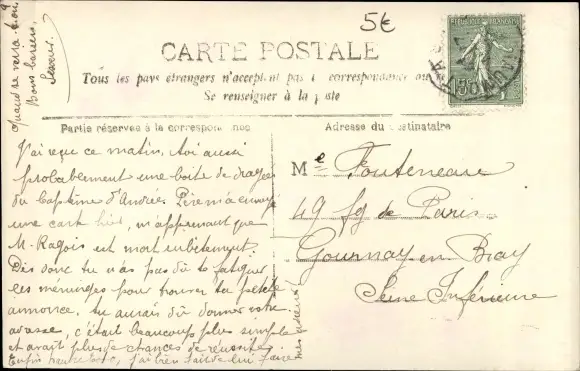 5€
Quand se verra-t-on?
Bons baisers,
CARTE POSTALE
Tous les pays étrangers n'acceptent pas la correspondance au
Se renseigner à la poste
RÉPUBLIQUE FRANÇAISE
Partie réservée à la correspondance
Adresse du destinataire
J'ai reçu ce matin, toi aussi
probablement une boite de dragées
du baptême d'Andrée. Père m'a envoyé
une carte hier, m'apprenant que
M. Ragois est mort subitement.
Dès donc tu n'as pas dû te fatiguer
les méninges pour trouver ta petite
annonce, tu aurais dû donner votre
adresse, c'était beaucoup plus simple
et avait plus de chances de réussites
Enfin j'ai bien fait de lui faire
mes
Mlle Fouteneau
49 fg de Paris
Gournay en Bray
Seine Inférieure